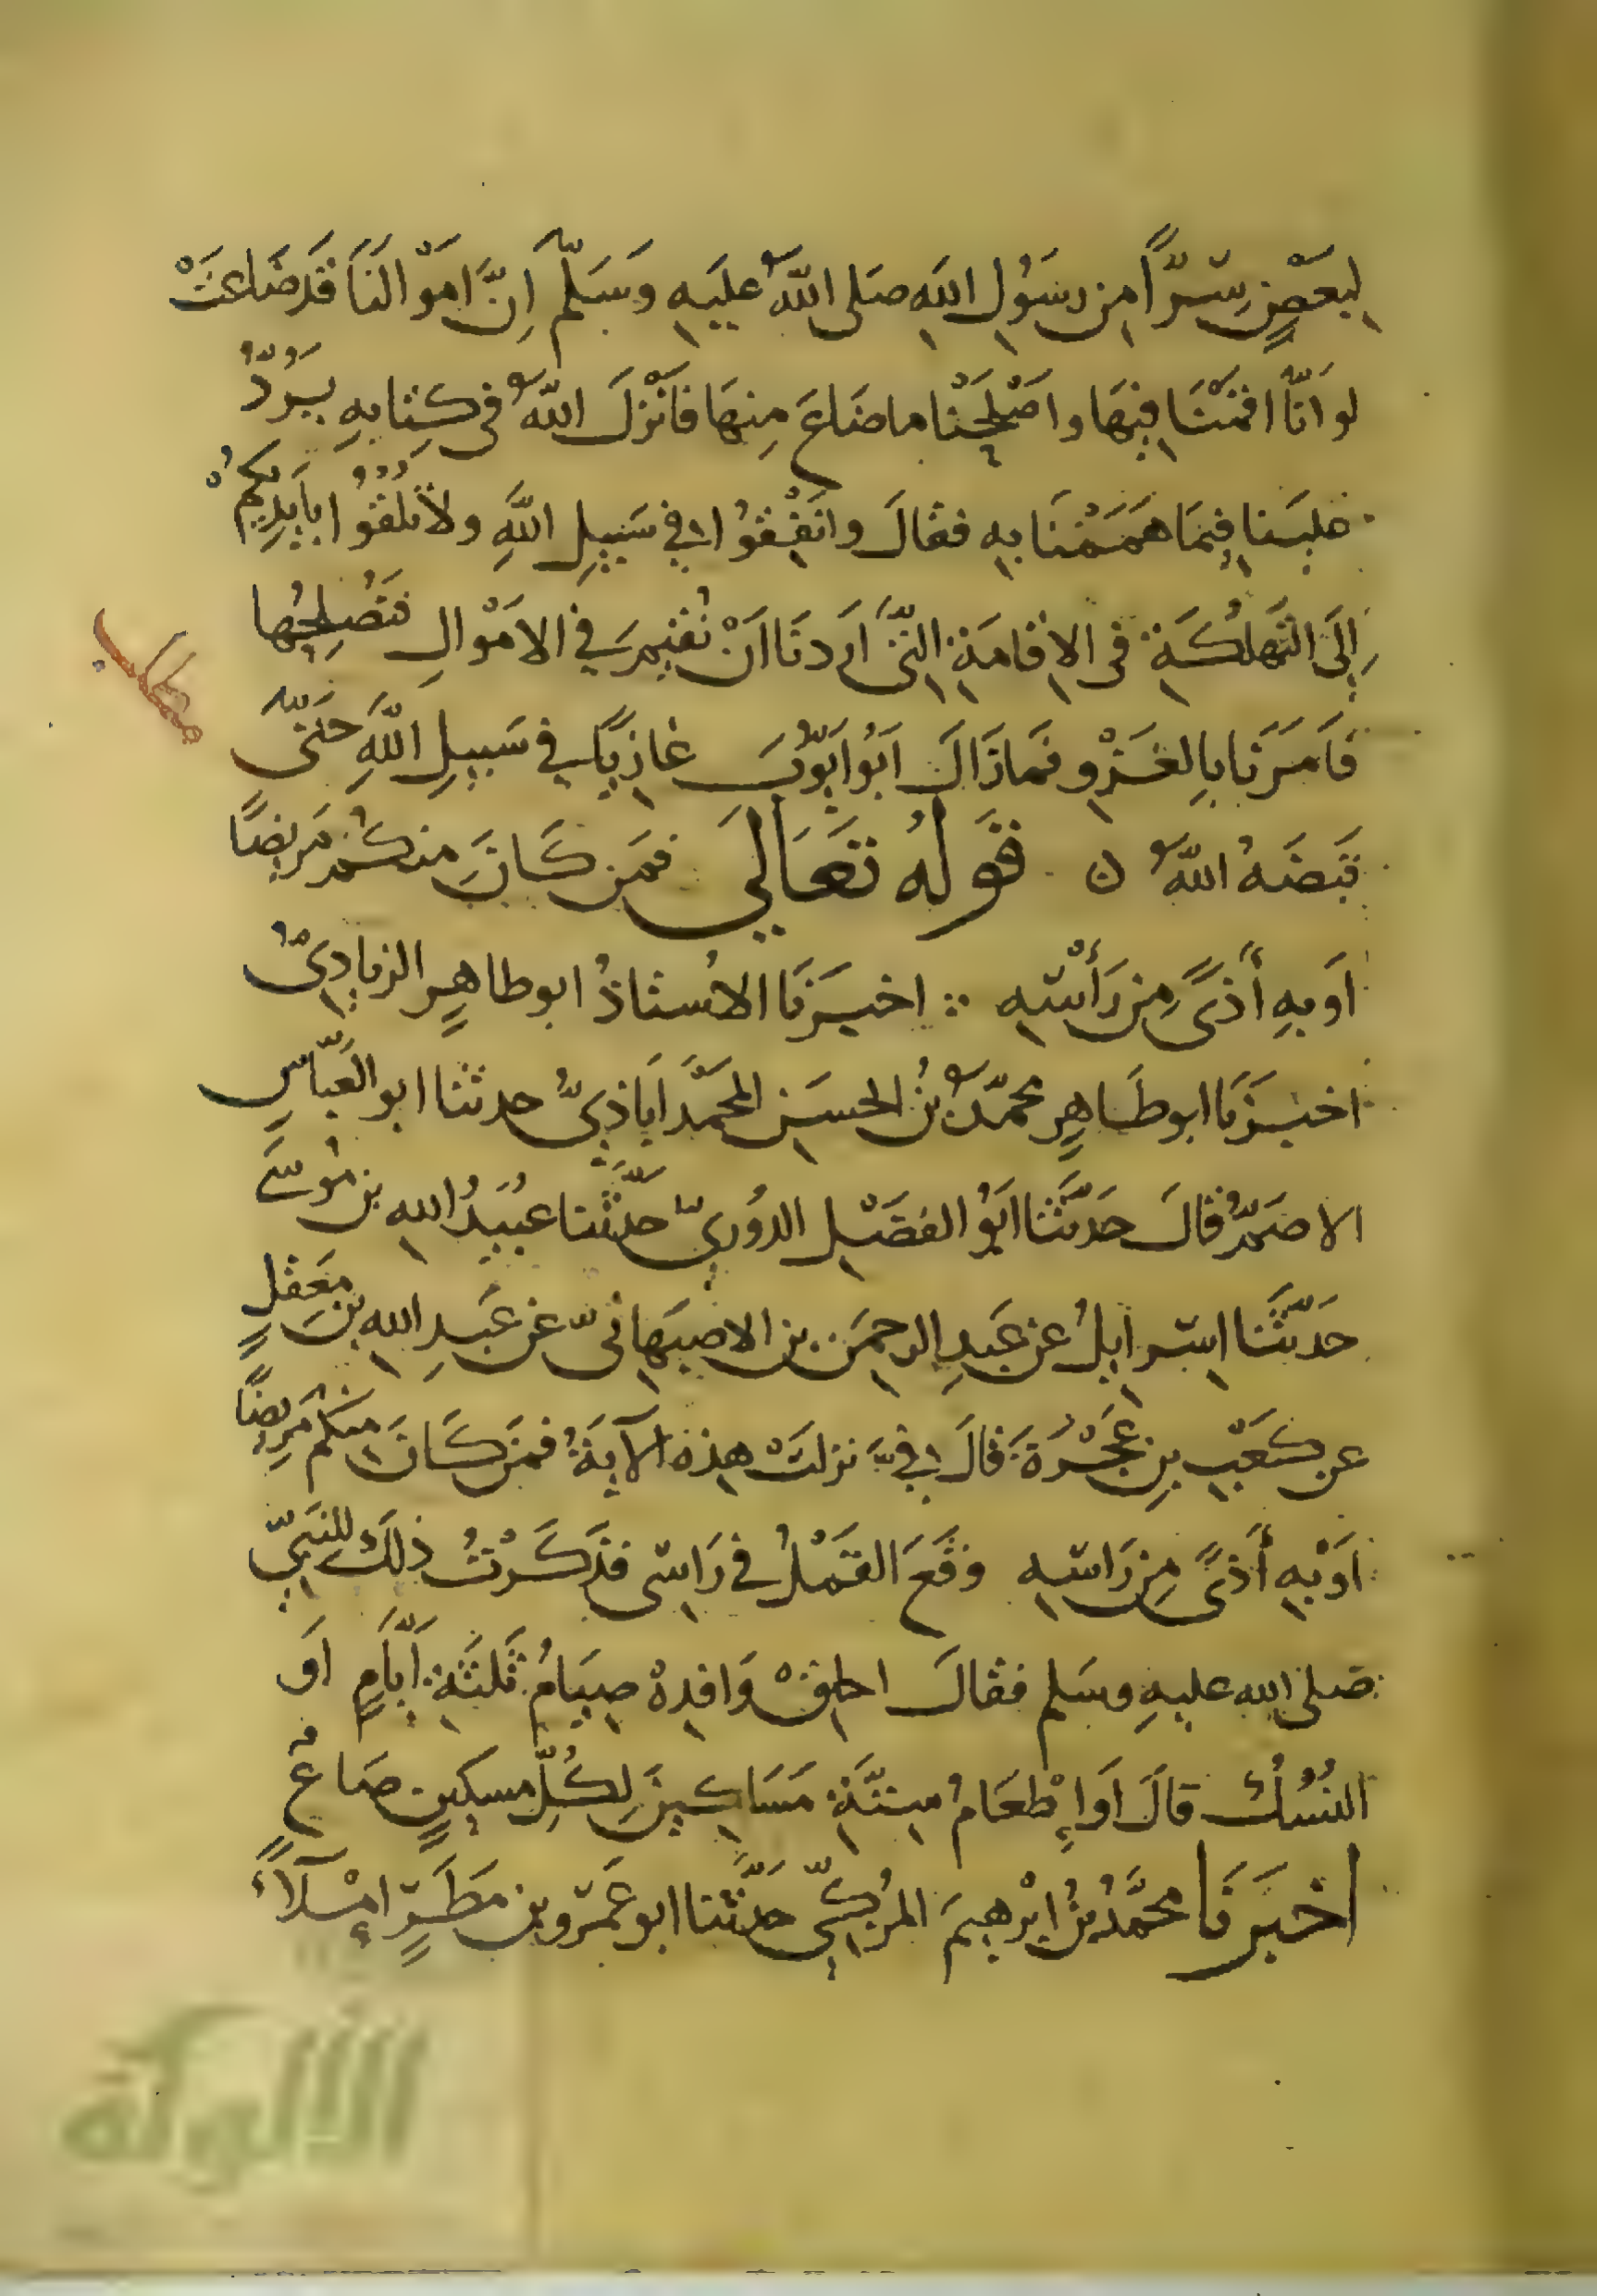 لِبَعْضٍ سِرّاً من رسَوُل الله صلى اللهُ عليَهِ وَسَلّم اِنَّ اموَالنَا قَد ضَاعَتْ
لو انّا اقمْنَا فيهَا واصْلحْنا ما ضاعَ مِنهَا فأنْزلَ اللهُ فى كِتابهِ يَرُدّ
علَينا فيمَا هَمَمْنَا بهِ فقالَ وانفِقُوا في سَبِيلِ اللهِ ولا تُلقُوا بأيدِيكُمْ
إلَى التَّهلُكَةِ فى الاِقامَةِ التّى اَردنَا اَنْ نُقيمَ في الامْوَالِ فنُصْلِحُها
مطلب
فَامَرَنا بِالغَزْو فمَا زَالَ ابُو ايّوُبَ غازِياً في سَبيلِ اللهِ حتّى
قبَضَهُ اللهُ ه قَولهُ تعَالي فمَن كَانَ منكُم مَرِيضًا
اَو بهِ أَذىً مِن رَأسِه ∴ اخبرَنَا الاُستاذُ ابوطاهِرٍ الزيادِيّ
اخبَرَنَا ابوطَاهِرٍ محمّدُ بنُ الحسَن المحمَّدَاباذِيّ حدثنا ابو العَبّاسِ
الاصَمّ قالَ حَدّثَنا ابَوُ الفضَلِ الدوُريّ حدّثنا عبُيَدُ الله بن مُوسَى
حَدّثَنا اسرايلُ عن عَبدِ الرحمَن بن الاصبهَانىّ عن عَبدِ الله بنِ مَعقِلٍ
عن كعَبْ بن عُجْرَةَ قالَ فيَّ نزلتْ هذهِ الآيَةُ فمَن كَانَ منكم مَرِيضًا
اَوْ بهِ أَذىً مِن رَاسه وَقَعَ القَمْلُ في رَاسى فذكَرْتُ ذلك للنَبيّ
صلى الله عليهِ وسَلم فقالَ احلِقْ وَافدِهْ صِيَامُ ثَلثَةِ اَيّامٍ اَو
النُسُك قالَ اَو اِطْعَامُ سِتَّةِ مَسَاكِينَ لِكُلِّ مسكِينٍ صَاعْ
اخبَرنَا محمَّدُ بنُ ابرْهيمَ المزُكيّ حَدّثنا ابو عَمْرو بن مَطَرٍ اِمْلَآءً
الألوكة